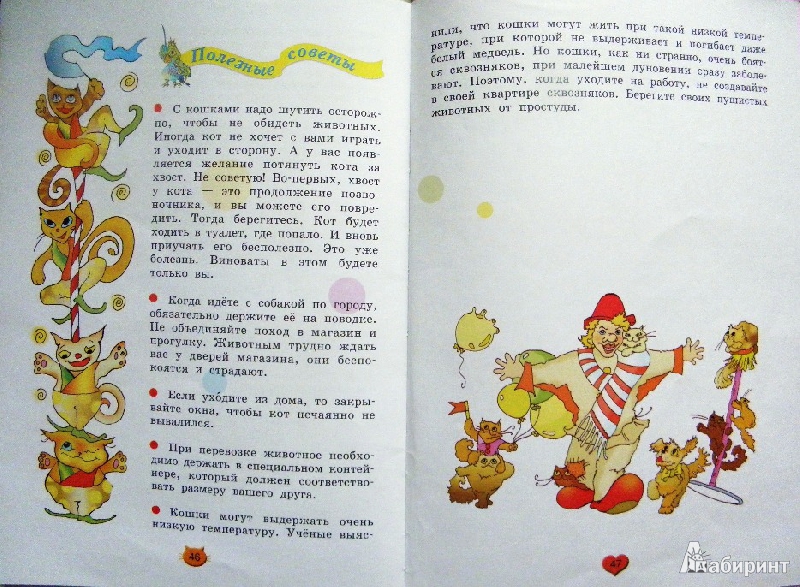 Полезные советы
С кошками надо шутить осторож-
но, чтобы не обидеть животных.
Иногда кот не хочет с вами играть
и уходит в сторону. А у вас появ-
ляется желание потянуть кота за
хвост. Не советую! Во-первых, хвост
у кота — это продолжение позво-
ночника, и вы можете его повре-
дить. Тогда берегитесь. Кот будет
ходить в туалет, где попало. И вновь
приучать его бесполезно. Это уже
болезнь. Виноваты в этом будете
только вы.
Когда идёте с собакой по городу,
обязательно держите её на поводке.
Не объединяйте поход в магазин и
прогулку. Животным трудно ждать
вас у дверей магазина, они беспо-
коятся и страдают.
Если уходите из дома, то закры-
вайте окна, чтобы кот нечаянно не
вывалился.
При перевозке животное необхо-
димо держать в специальном контей-
нере, который должен соответство-
вать размеру вашего друга.
Кошки могут выдержать очень
низкую температуру. Учёные выяс-
46
нили, что кошки могут жить при такой низкой темпе-
ратуре, при которой не выдерживает и погибает даже
белый медведь. Но кошки, как ни странно, очень боят-
ся сквозняков, при малейшем дуновении сразу заболе-
вают. Поэтому, когда уходите на работу, не создавайте
в своей квартире сквозняков. Берегите своих пушистых
животных от простуды.
47
Лабиринт